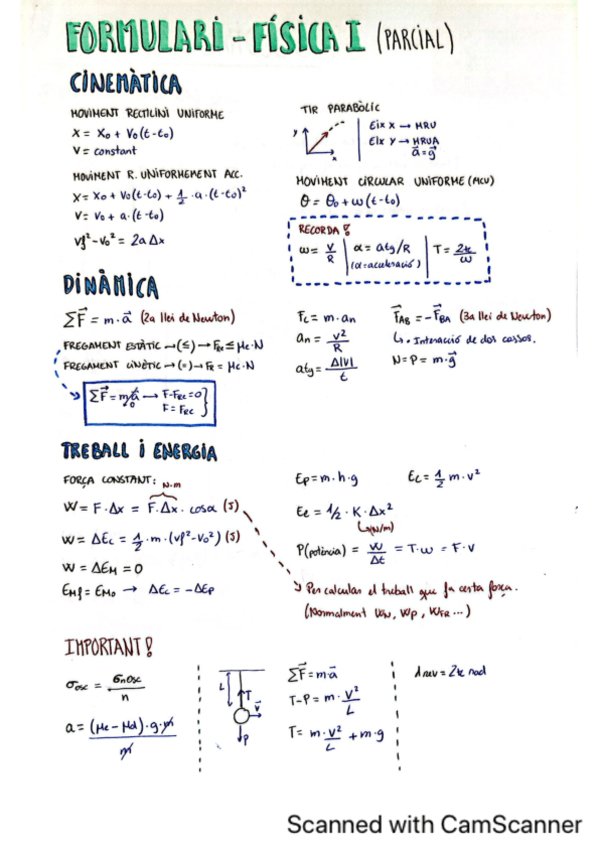 FORMULARI - FÍSICA I (PARCIAL)
CINEMÀTICA
MOVIMENT RECTILINI UNIFORME
x = x₀ + v₀(t-t₀)
v = constant
MOVIMENT R. UNIFORMEMENT ACC.
x = x₀ + v₀(t-t₀) + 1/2 · a · (t-t₀)²
v = v₀ + a · (t-t₀)
vf² - v₀² = 2aΔx
TIR PARABÒLIC
y
x
Eix X → MRU
Eix Y → MRUA
a⃗ = g⃗
MOVIMENT CIRCULAR UNIFORME (MCU)
θ = θ₀ + ω(t-t₀)
RECORDA!
ω = v/R | α = atg/R | T = 2π/ω
(α = acceleració)
DINÀMICA
ΣF⃗ = m · a⃗ (2a llei de Newton)
FREGAMENT ESTÀTIC → (≤) → FRe ≤ μe · N
FREGAMENT CINÈTIC → (=) → FR = μc · N
ΣF⃗ = ma⃗ → F-FRC = 0
0
F = FRC
Fc = m · an
an = v²/R
atg = Δ|v|/t
F⃗AB = -F⃗BA (3a llei de Newton)
↳ · Interacció de dos cossos.
N = P = m · g⃗
TREBALL i ENERGIA
FORÇA CONSTANT:
N·m
W = F · Δx = F · Δx · cosα (J)
W = ΔEc = 1/2 · m · (vf² - v₀²) (J)
W = ΔEM = 0
EMf = EM₀ → ΔEc = -ΔEp
Ep = m · h · g
Ec = 1/2 m · v²
Ee = 1/2 · K · Δx²
↳ (N/m)
P(potència) = W/Δt = T · ω = F · v
Per calcular el treball que fa certa força.
(Normalment WN, WP, WFR ...)
IMPORTANT!
σosc = σnosc/n
a = (μe - μd) · g · m/m
L
T
v⃗
P
ΣF⃗ = m · a⃗
T-P = m · v²/L
T = m · v²/L + m · g
1 rev = 2π rad
Scanned with CamScanner